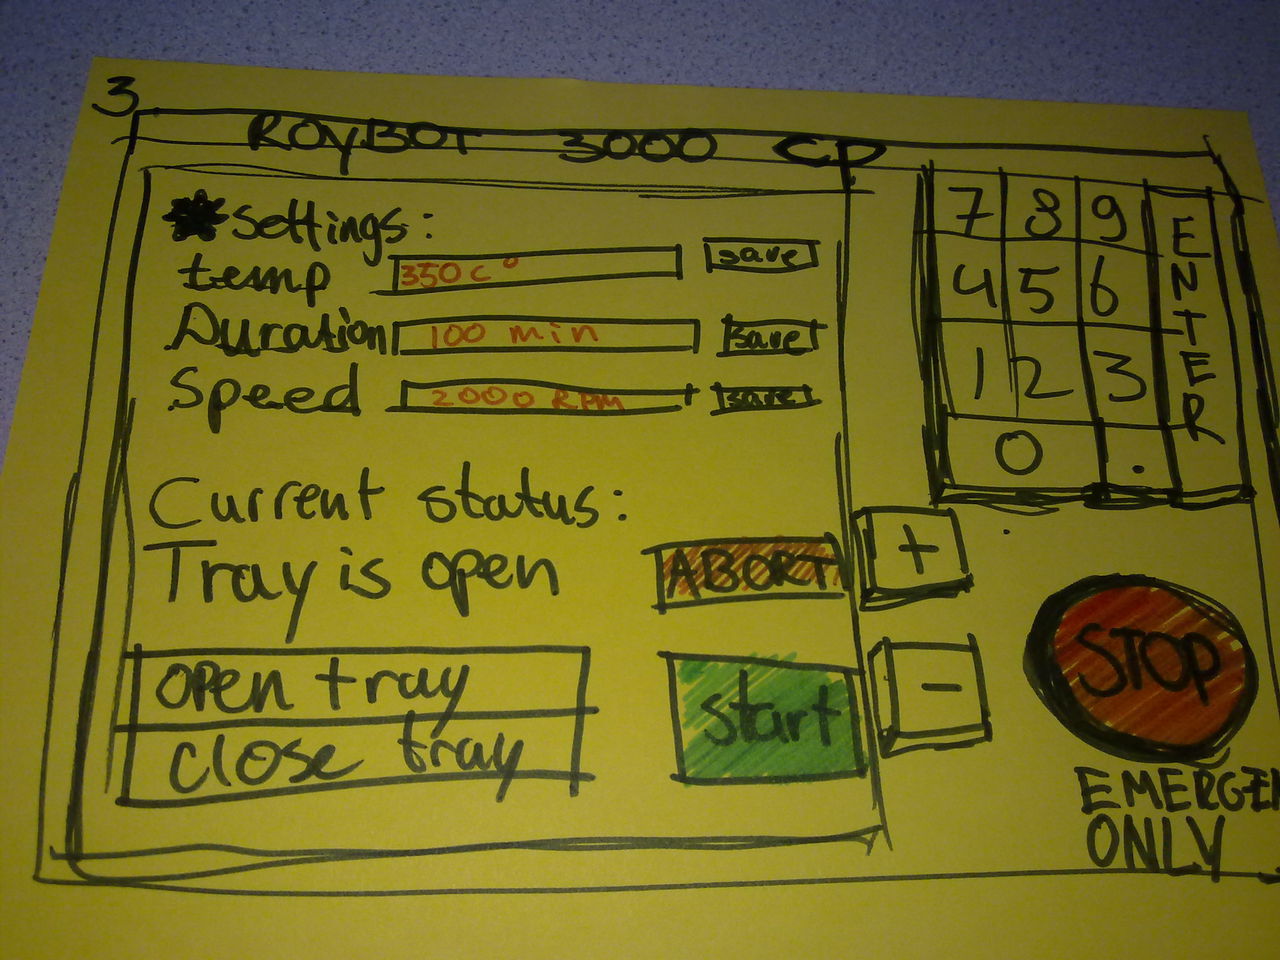 3
ROYBOT 3000 CP
Settings:
temp 350 c° save
Duration 100 min save
Speed 2000 RPM save
Current status:
Tray is open ABORT
open tray
close tray
start
7 8 9
4 5 6
1 2 3
0 .
ENTER
+
-
STOP
EMERGEN
ONLY